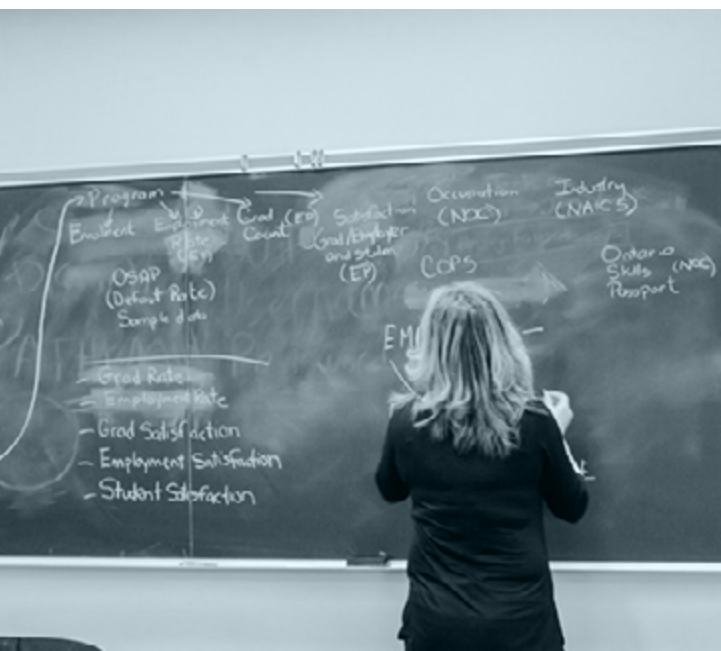 Program
Enrolment
Employment
Rate
Grad
Count (EP)
Satisfaction
Grad/Employer
and student
(EP)
Occupation
(NOC)
Industry
(NAICS)
OSAP
(Default Rate)
Sample data
COPS
Ontario
Skills (NOC)
Passport
EM
- Grad Rate
- Employment Rate
- Grad Satisfaction
- Employment Satisfaction
- Student Satisfaction